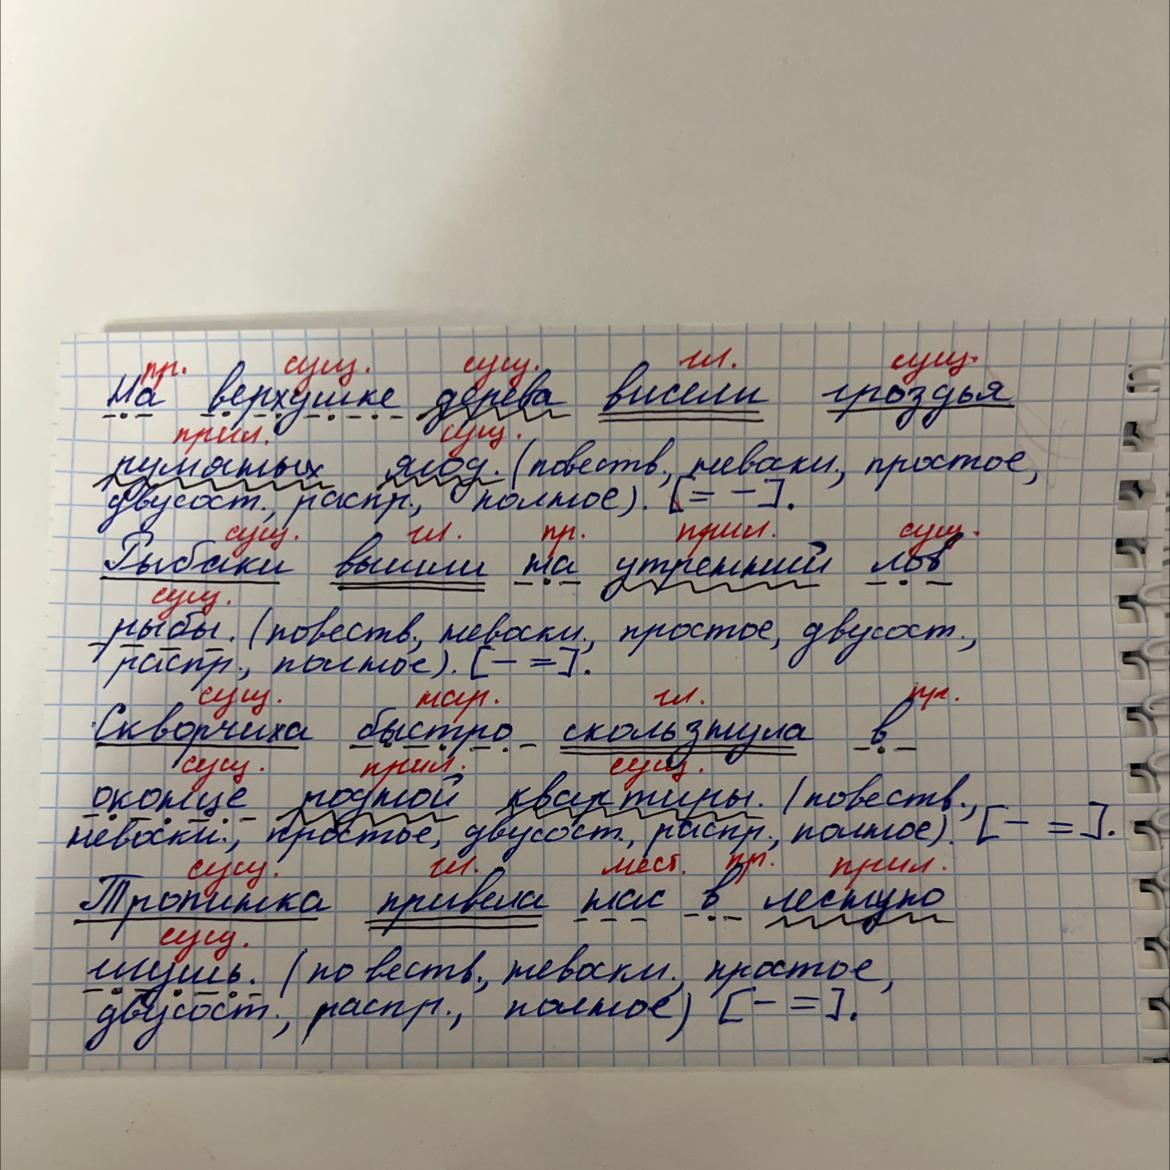 пр. сущ. сущ. гл. сущ.
На верхушке дерева висели гроздья
прил. сущ.
румяных ягод. (повеств., невоскл., простое,
двусост., распр., полное). [= –].
сущ. гл. пр. прил. сущ.
Рыбаки вышли на утренний лов
сущ.
рыбы. (повеств., невоскл., простое, двусост.,
распр., полное). [– =].
сущ. нар. гл. пр.
Скворчиха быстро скользнула в
сущ. прил. сущ.
оконце родной квартиры. (повеств.,
невоскл., простое, двусост., распр., полное). [– =].
сущ. гл. мест. пр. прил.
Тропинка привела нас в лесную
сущ.
глушь. (повеств., невоскл., простое,
двусост., распр., полное) [– =].